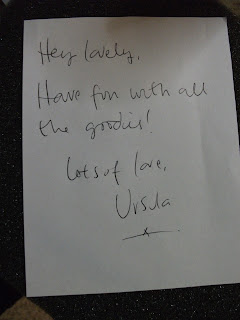 Hey lovely,
Have fun with all
the goodies!
Lots of love,
Ursula
x